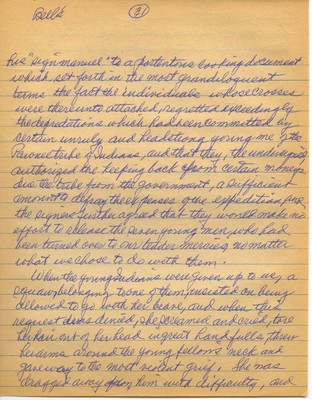 Bells (31)
his "sign manuel" to a portentous looking document
which set forth in the most grandiloquent
terms the fact the individuals whose crosses
were thereunto attached, regretted exceedingly
the depredations which had been committed by
certain unruly and headstrong young me of the
Pawnee tribe of Indians, and that they, the undersigned
authorized the keeping back from certain moneys
due the tribe from the government, a sufficient
amount to defray the expenses of the expedition,
the signers further agreed that they would make no
effort to release the seven young men, who had
been turned over to our tender mercies no matter
what we chose to do with them.
When the young Indians were given up to us, a
squaw belonging to one of them, insisted on being
allowed to go with her beau, and when this
request was denied, she screamed, and cried, tore
her hair out of her head in great handfulls, threw
her arms around the young fellows neck and
gave way to the most violent grief. She was
dragged away from him with difficulty, and